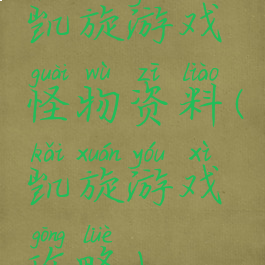 凯旋游戏
guài wù zī liào
怪物资料(
kǎi xuán yóu xì
凯旋游戏
gōng lüè
攻略)